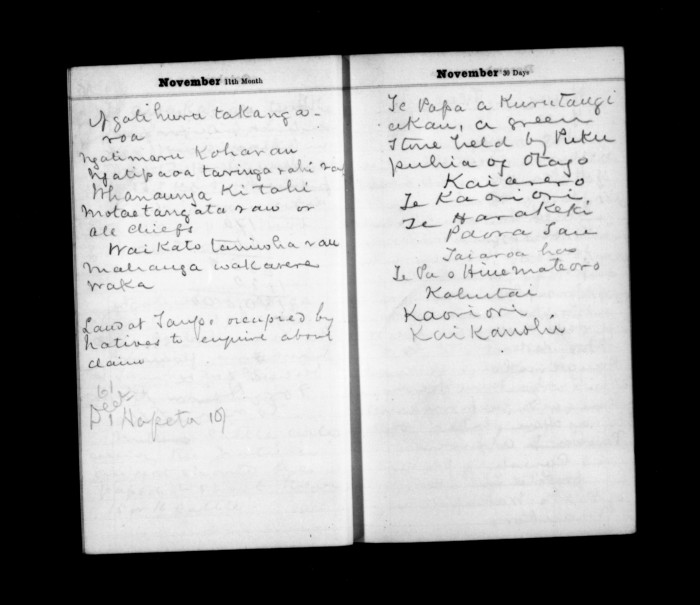 November 11th Month
Ngatihuru takanga-
roa
Ngatimaru Koharau
Ngatipaoa taringa rahi rau
Whanaunga Ki tahi
Motaetangata rau or
all chiefs
Waikato taniwha rau
Mahanga wakarere
waka
Land at Taupo occupied by
natives to enquire about
claim
Hapeta 10/
November 30 Days
Te Papa a Kurutangi
akau, a green
stone held by Puku
puhia of Otago
Kaiarero
Te Kaoriori,
Te Harakeki
Paora Tau
Taiaroa has
Te Pa o Hinemateoro
Kahutai
Kaoriori
Kai Kanohi